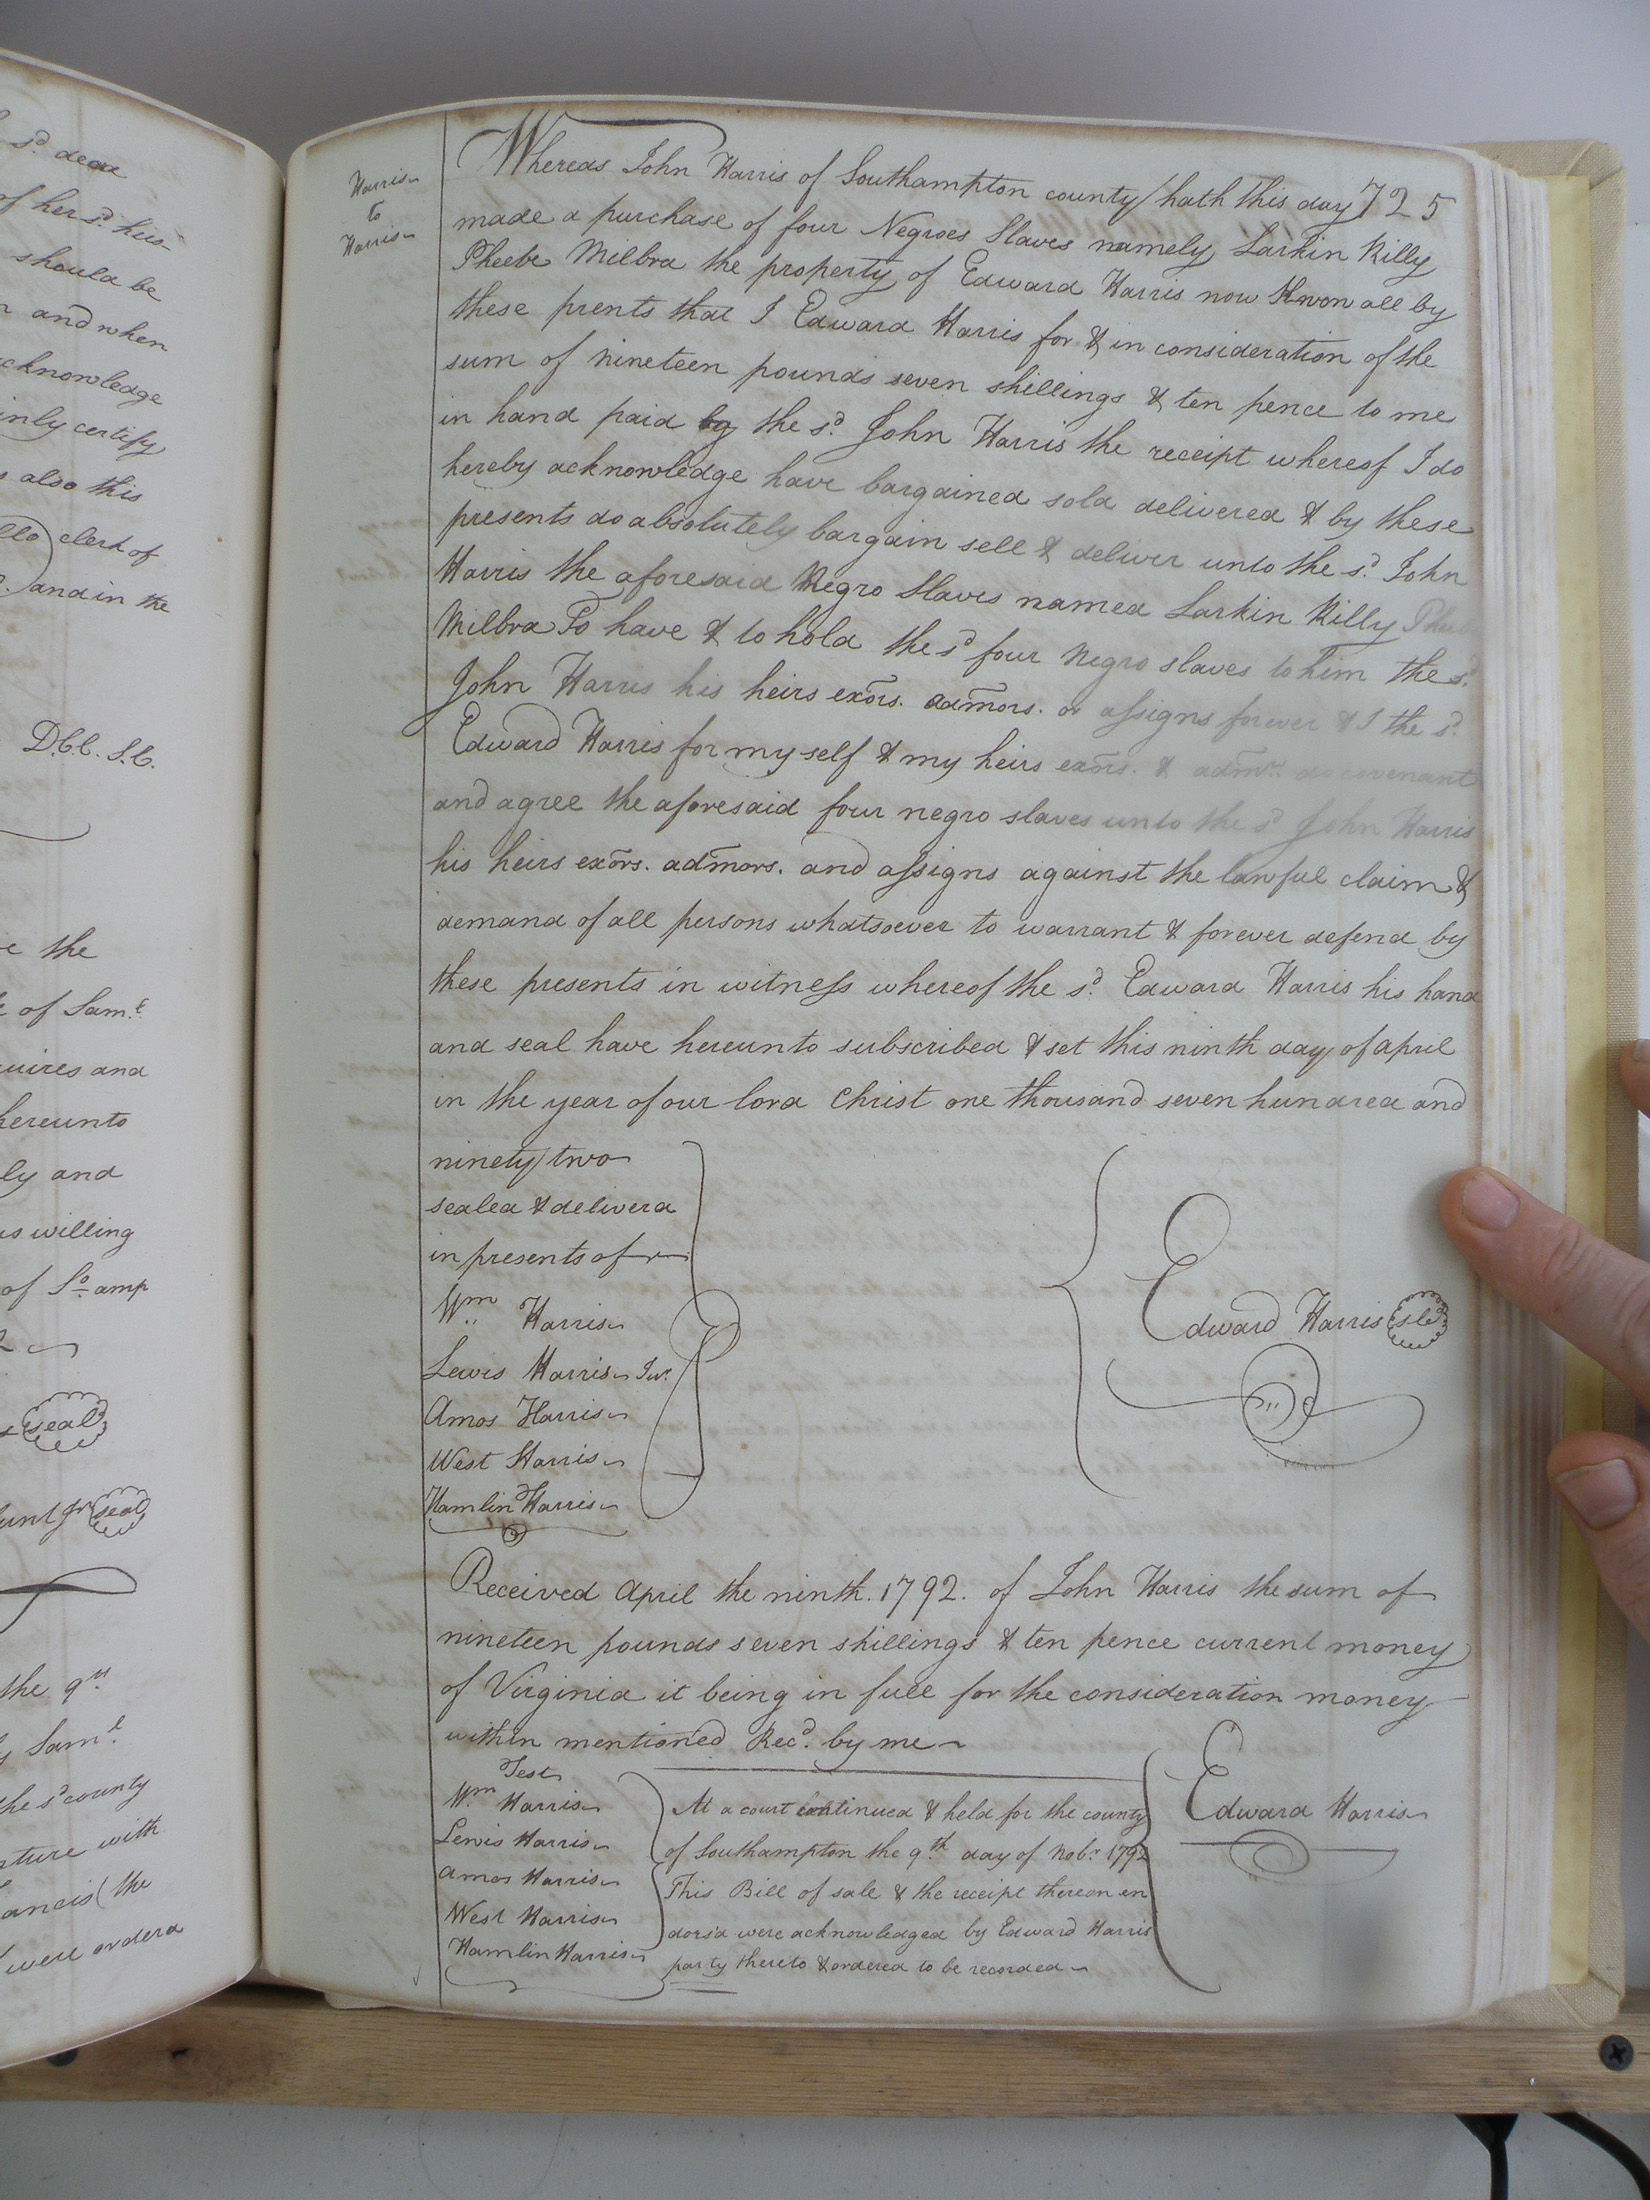 sd. dece
of her sd. hus-
should be
and when
acknowledge
inly certify
also this
clerk of
and in the
D.C.C. S.C.
the
of Saml.
uires and
hereunto
ly and
is willing
of So. amp
seal
unt Jr seal
the 9th
Saml.
the sd county
ture with
ancis the
were orderd
Harris
to
Harris
725
Whereas John Harris of Southampton county hath this day
made a purchase of four Negroes Slaves namely Larkin Killy
Pheebe Milbra the property of Edward Harris now Know all by
these prents that I Edward Harris for & in consideration of the
sum of nineteen pounds seven shillings & ten pence to me
in hand paid by the sd. John Harris the receipt whereof I do
hereby acknowledge have bargained sold delivered & by these
presents do absolutely bargain sell & deliver unto the sd. John
Harris the aforesaid Negro Slaves named Larkin Killy
Milbra To have & to hold the sd four negro slaves to him the sd.
John Harris his heirs exors. admors. or assigns forever & I the sd.
Edward Harris for my self & my heirs exors. & admrs. do covenant
and agree the aforesaid four negro slaves unto the sd John Harris
his heirs exors. admors. and assigns against the lawful claim &
demand of all persons whatsoever to warrant & forever defend by
these presents in witness whereof the sd. Edward Harris his hand
and seal have hereunto subscribed & set this ninth day of april
in the year of our lord Christ one thousand seven hundred and
ninety two
sealed & deliverd
in presents of
Wm Harris
Lewis Harris Jur.
Amos Harris
West Harris
Hamlin Harris
Edward Harris sle
Received April the ninth. 1792. of John Harris the sum of
nineteen pounds seven shillings & ten pence current money
of Virginia it being in full for the consideration money
within mentioned Recd. by me
Edward Harris
Test
Wm Harris
Lewis Harris
Amos Harris
West Harris
Hamlin Harris
At a court continued & held for the county
of Southampton the 9th day of Nobr. 1792
This Bill of sale & the receipt thereon en
dorsd were acknowledged by Edward Harris
party thereto & ordered to be recorded